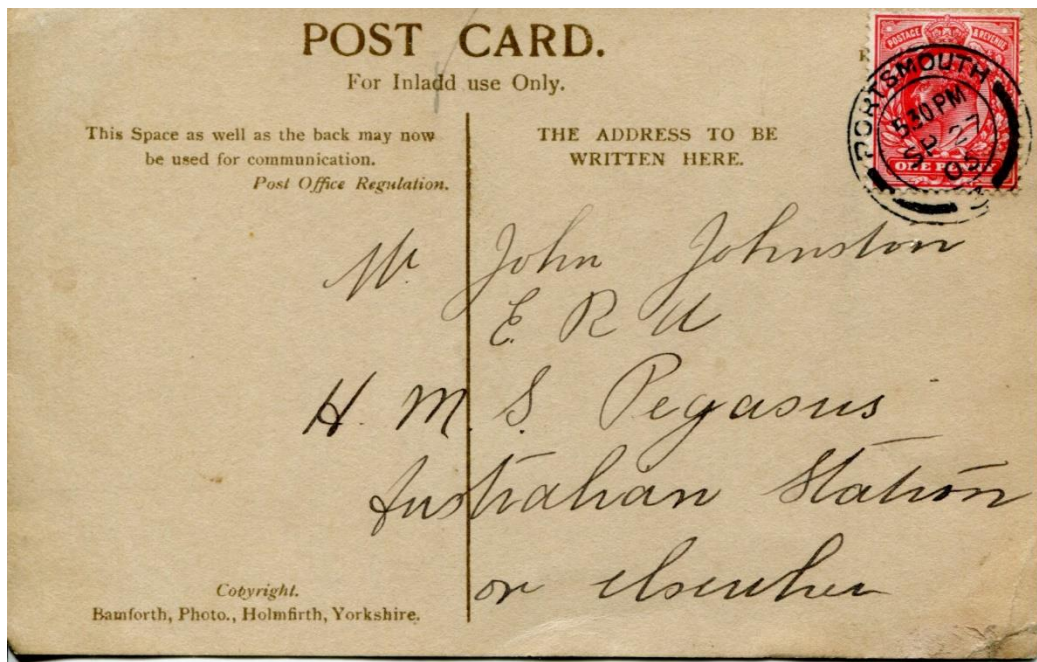 POST CARD.
For Inladd use Only.
This Space as well as the back may now
be used for communication.
Post Office Regulation.
THE ADDRESS TO BE
WRITTEN HERE.
POSTAGE & REVENUE
ONE PENNY
PORTSMOUTH
5.30 PM
SP 27
05
Mr John Johnston
E R A
H. M. S. Pegasus
Australian Station
or elsewher
Copyright.
Bamforth, Photo., Holmfirth, Yorkshire.